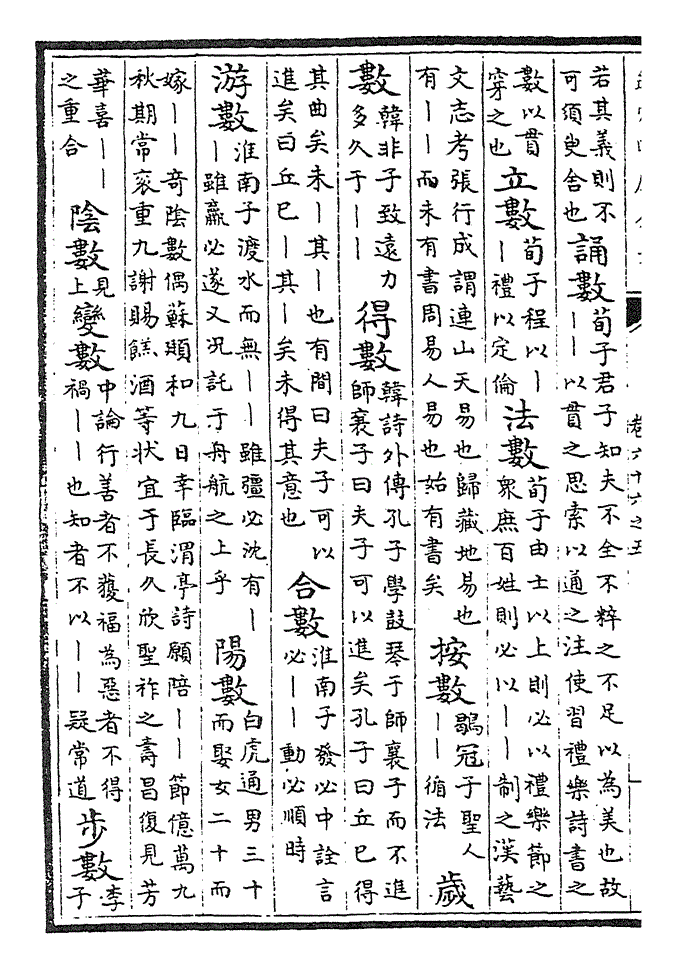 卷六十六之五
若其義則不
可須臾舍也
誦數
荀子君子知夫不全不粹之不足以為美也故
丨丨以貫之思索以通之注使習禮樂詩書之
數以貫
穿之也
立數
荀子程以丨
丨禮以定倫
法數
荀子由士以上則必以禮樂節之
衆庶百姓則必以丨丨制之漢藝
文志考張行成謂連山天易也歸藏地易也
有丨丨而未有書周易人易也始有書矣
按數
鶡冠子聖人
丨丨循法
歲
數
韓非子致遠力
多久于丨丨
得數
韓詩外傳孔子學鼓琴于師襄子而不進
師襄子曰夫子可以進矣孔子曰丘已得
其曲矣未丨其丨也有間曰夫子可以
進矣曰丘已丨其丨矣未得其意也
合數
淮南子發必中詮言
必丨丨動必順時
游數
淮南子渡水而無丨丨雖彊必沈有丨
丨雖羸必遂又况託于舟航之上乎
陽數
白虎通男三十
而娶女二十而
嫁丨丨奇陰數偶蘇頲和九日幸臨渭亭詩願陪丨丨節億萬九
秋期常衮重九謝賜餻酒等狀宜于長久欣聖祚之壽昌復見芳
華喜丨丨
之重合
陰數
見
上
變數
中論行善者不獲福為惡者不得
禍丨丨也知者不以丨丨疑常道
步數
李
子